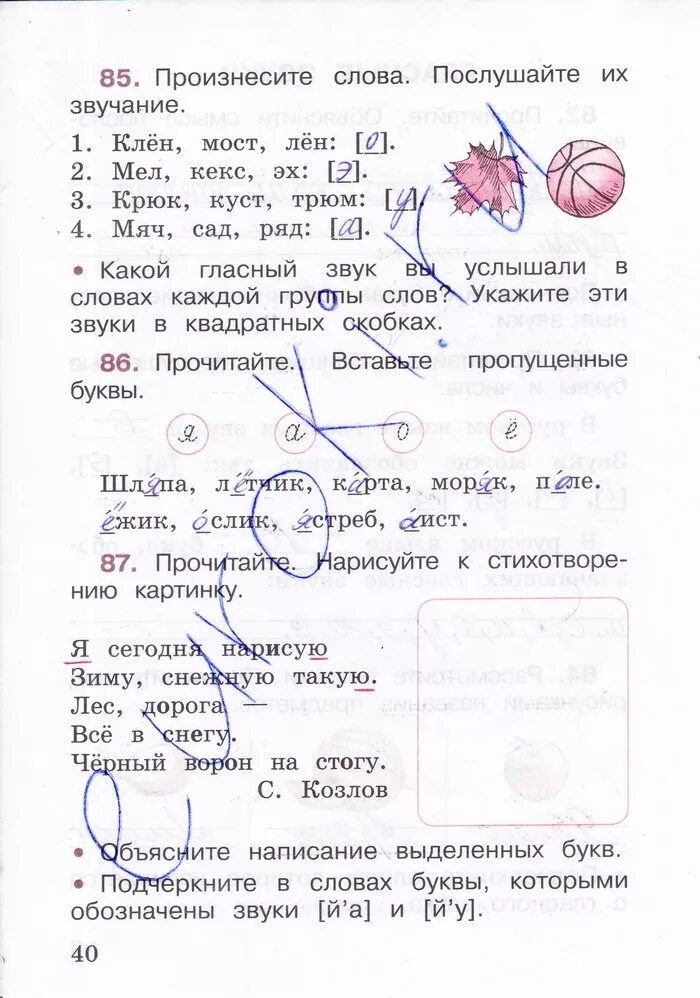 85. Произнесите слова. Послушайте их
звучание.
1. Клён, мост, лён: [о].
2. Мел, кекс, эх: [э].
3. Крюк, куст, трюм: [у].
4. Мяч, сад, ряд: [а].
• Какой гласный звук вы услышали в
словах каждой группы слов? Укажите эти
звуки в квадратных скобках.
86. Прочитайте. Вставьте пропущенные
буквы.
я а о ё
Шляпа, лётчик, карта, моряк, поле.
Ёжик, ослик, ястреб, аист.
87. Прочитайте. Нарисуйте к стихотворе-
нию картинку.
Я сегодня нарисую
Зиму, снежную такую.
Лес, дорога —
Всё в снегу.
Чёрный ворон на стогу.
С. Козлов
• Объясните написание выделенных букв.
• Подчеркните в словах буквы, которыми
обозначены звуки [й'а] и [й'у].
40